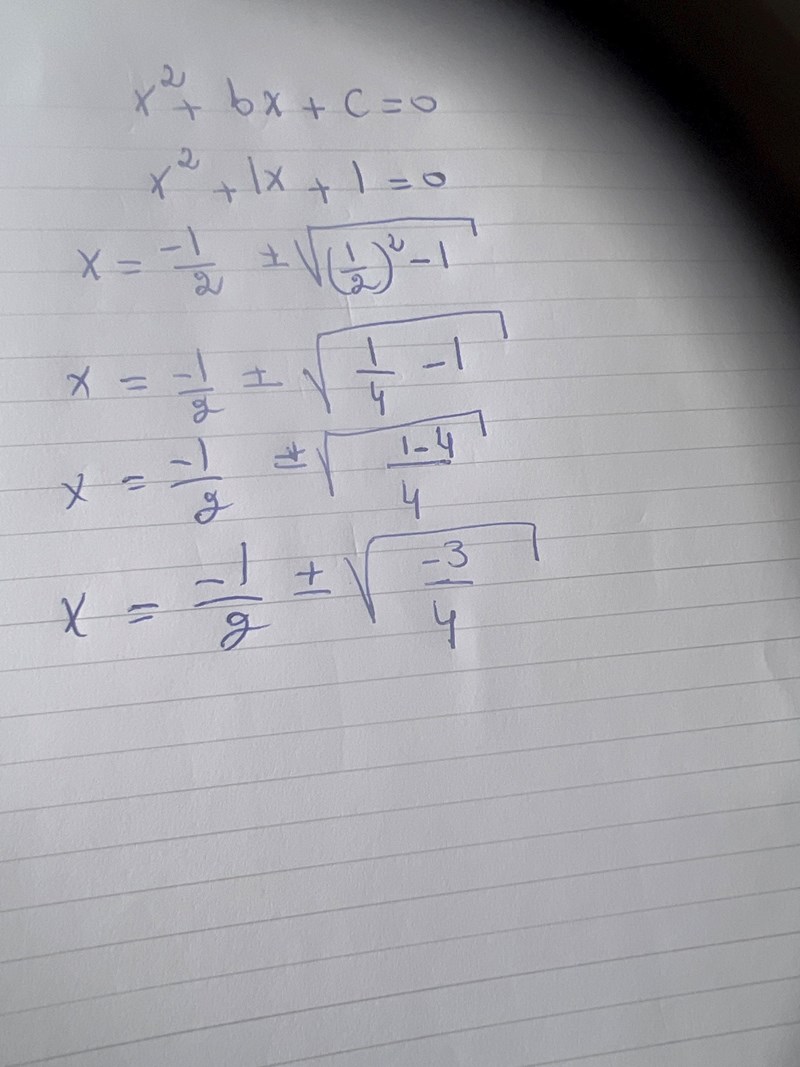 x² + bx + c = 0
x² + 1x + 1 = 0
x = -1/2 ± √((1/2)² - 1)
x = -1/2 ± √(1/4 - 1)
x = -1/2 ± √((1-4)/4)
x = -1/2 ± √(-3/4)